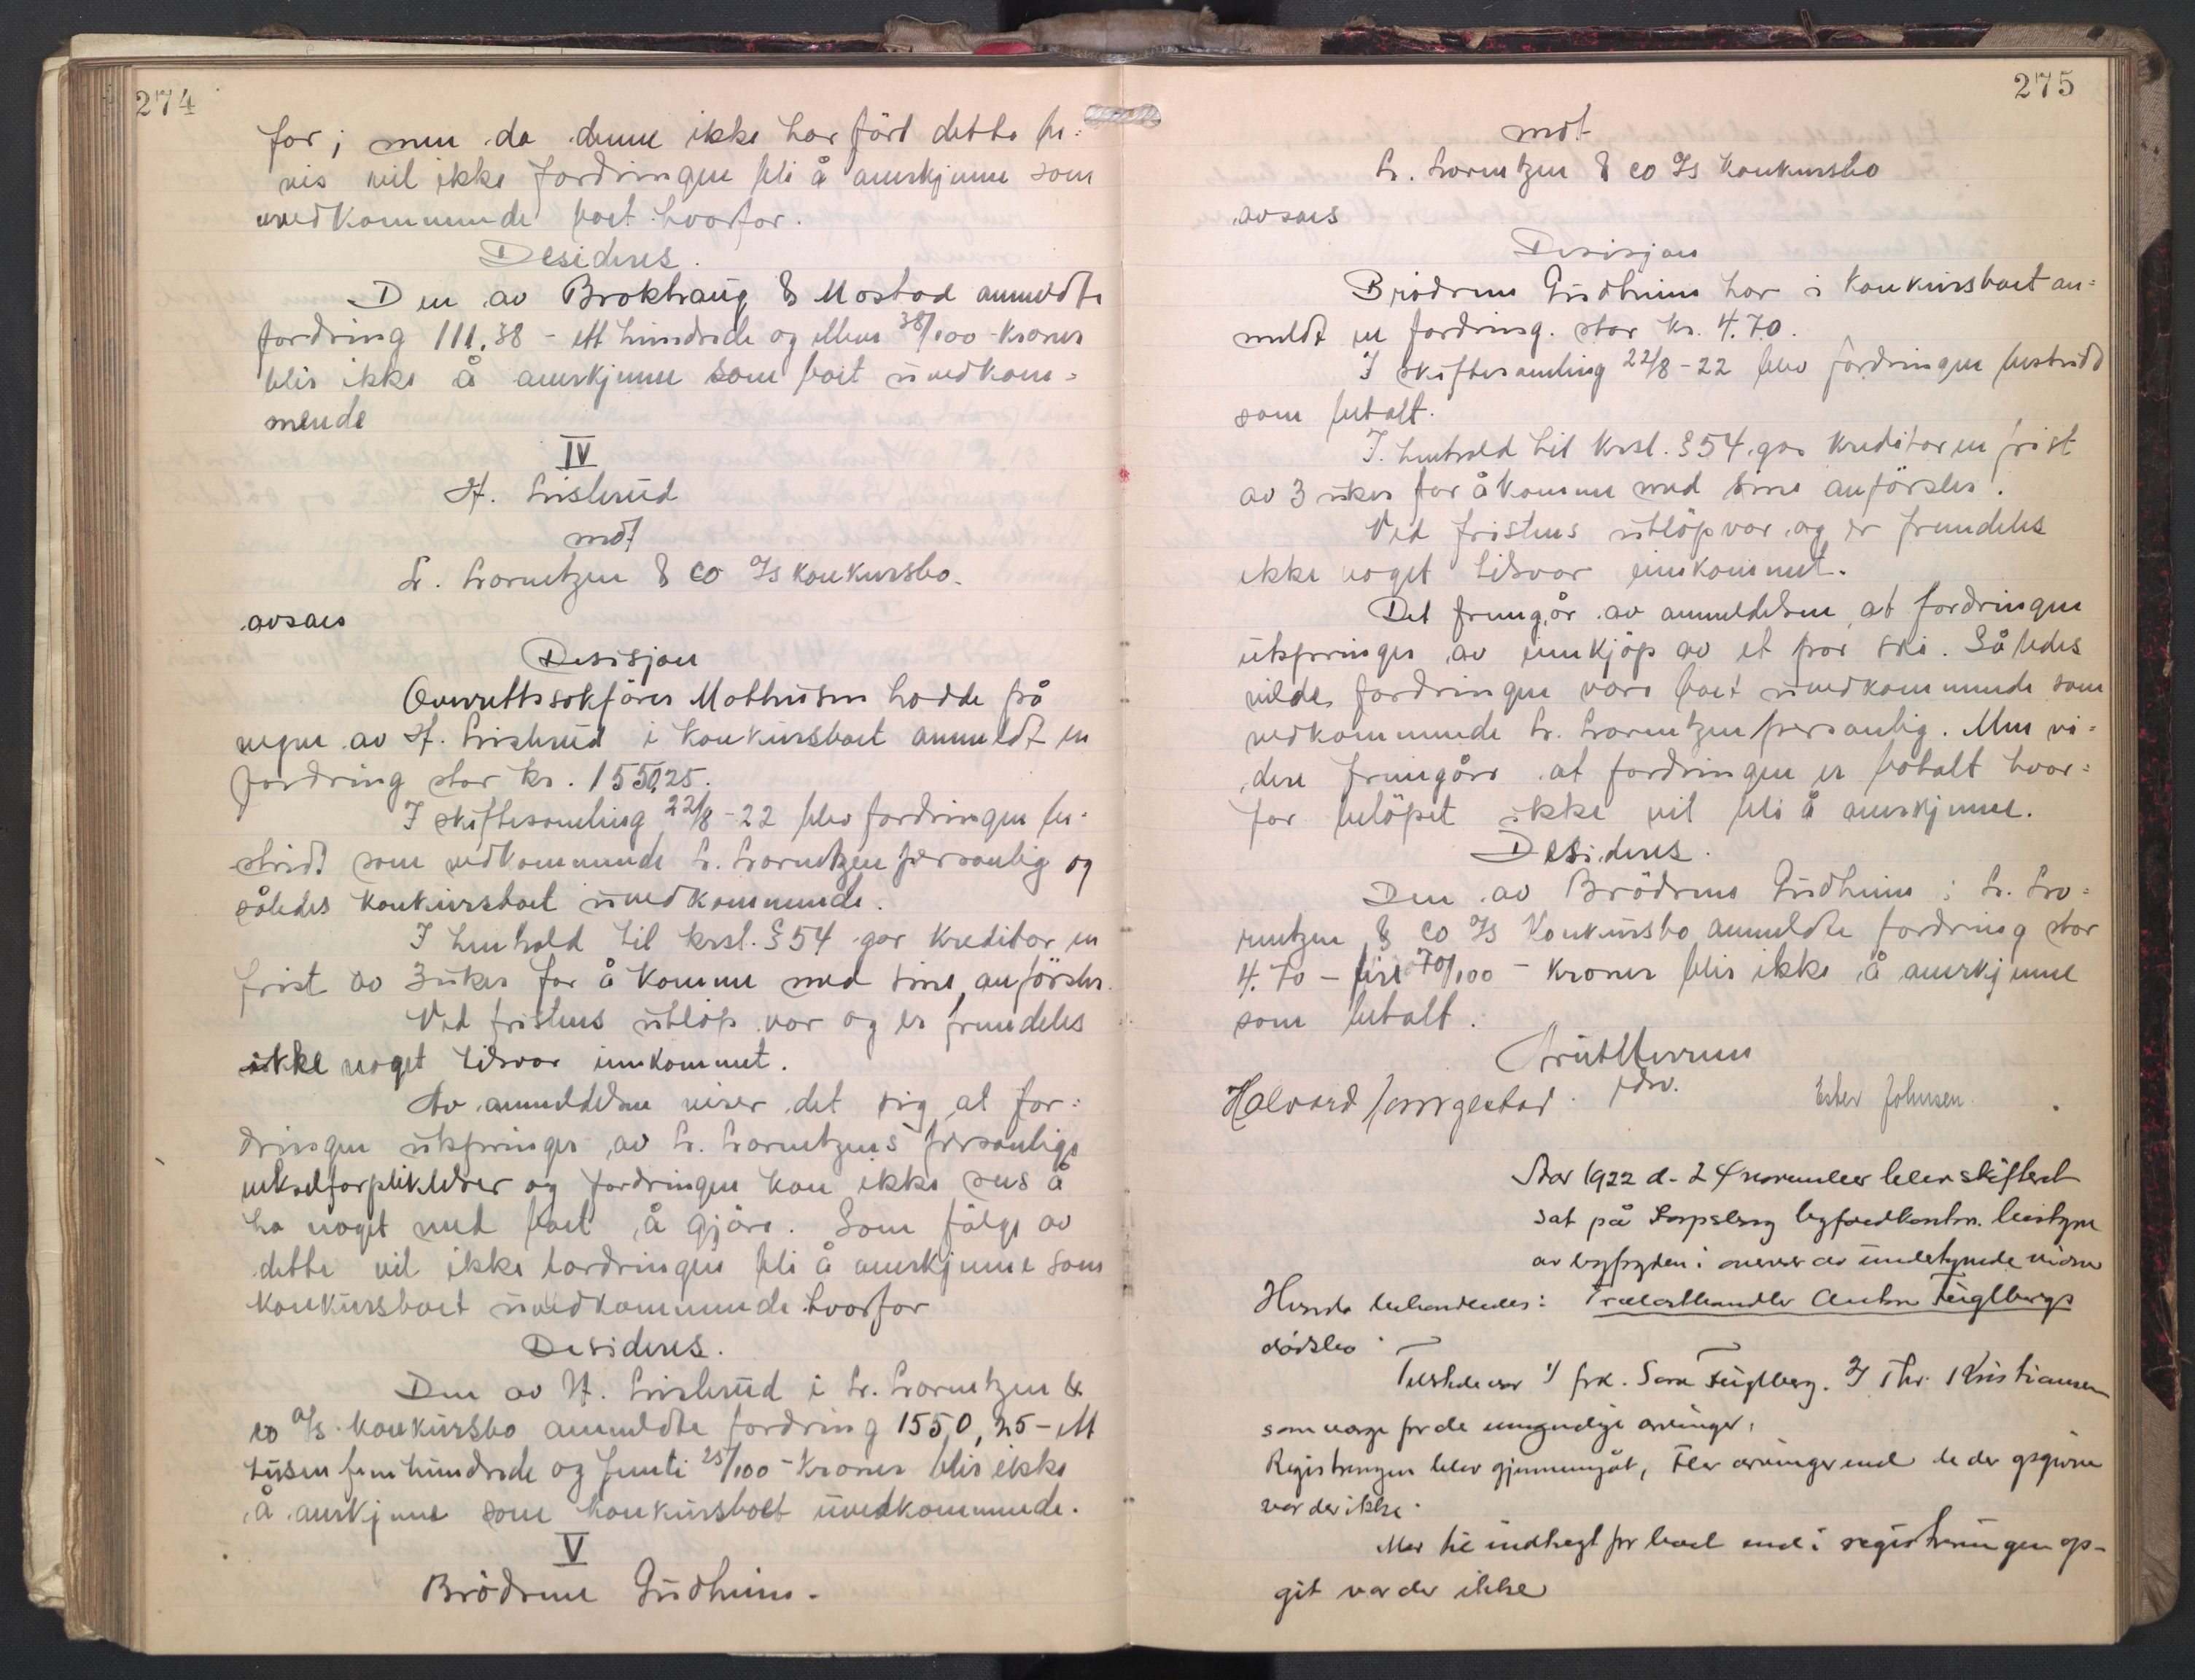 274
for; men da denne ikke har fört dette be=
vis vil ikke fordringen bli å anerkjenne som
uvedkommende boet hvorfor.
Desideres.
Den av Brokhaug & Mostad anmeldte
fordring 111,38 - ett hundrede og elleve 38/100 - kroner
blir ikke å anerkjenne som boet uvedkom=
mende
IV
H. Lislerud
mot
L. Lorentzen & Co A/s konkursbo.
avsaes
Desisjon
Overrettssakförer Mathisen hadde på
vegne av H. Lislerud i konkursboet anmeldt en
fordring stor kr. 1550,25.
I skiftesamling 22/8 - 22 blev fordringen be=
stridt som vedkommende L. Lorentzen personlig og
således konkursboet uvedkommende.
I henhold til krsl. § 54 gav kreditor en
frist av 3 uker for å komme med sine anförsler.
Ved fristens utlöp var og er fremdeles
ikke noget tilsvar innkommet.
Av anmeldelsen viser det sig at for=
dringen utspringer av L. Lorentzens personlige
vekselforpliktelser og fordringen kan ikke sees å
ha noget med boet å gjöre. Som fölge av
dette vil ikke fordringen bli å anerkjenne som
konkursboet uvedkommende hvorfor
Desideres.
Den av H. Lislerud i L. Lorentzen &
Co A/s konkursbo anmeldte fordring 1550,25 - ett
tusen femhundrede og femti 25/100 - kroner blir ikke
å anerkjenne som konkursboet uvedkommende.
V
Brödrene Gudheim.
275
mot
L. Lorentzen & Co A/s konkursbo
avsaes
Desisjon
Brödrene Gudheim har i konkursboet an=
meldt en fordring. stor kr. 4.70.
I skiftesamling 22/8 - 22 blev fordringen bestridt
som betalt.
I henhold til krsl. § 54 gav kreditor en frist
av 3 uker for å komme med sine anförsler.
Ved fristens utlöp var og er fremdeles
ikke noget tilsvar innkommet.
Det fremgår av anmeldelsen at fordringen
utspringer av innkjöp av et par ski. Således
vilde fordringen være boet uvedkommende som
vedkommende L. Lorentzen personlig. Men vi=
dere fremgåre at fordringen er betalt hvor=
for belöpet ikke vil bli å anerkjenne.
Desideres.
Den av Brödrene Gudheim i L. Lo=
rentzen & Co A/s Konkursbo anmeldte fordring stor
4.70 - fire 70/100 - kroner blir ikke å anerkjenne
som betalt.
Halvard
Ester Johnsen.
Aar 1922 d. 24 november blev skifteret
sat på Sarpsborg byfoedkontor. bestyret
av byfogden i overvær av undertegnede vidner
Herunder behandledes: Trælasthandler Anton Fuglbergs
dödsbo.
Tilstede var 1/ frk. Sara Fuglberg. 2/ Thr. Kristiansen
som værge for de umyndige arvinger.
Registreringen blev gjennemgåt, Fler arvinger end de der opgivne
var der ikke.
Mer til indtægt for boet end i registreringen op-
git var der ikke